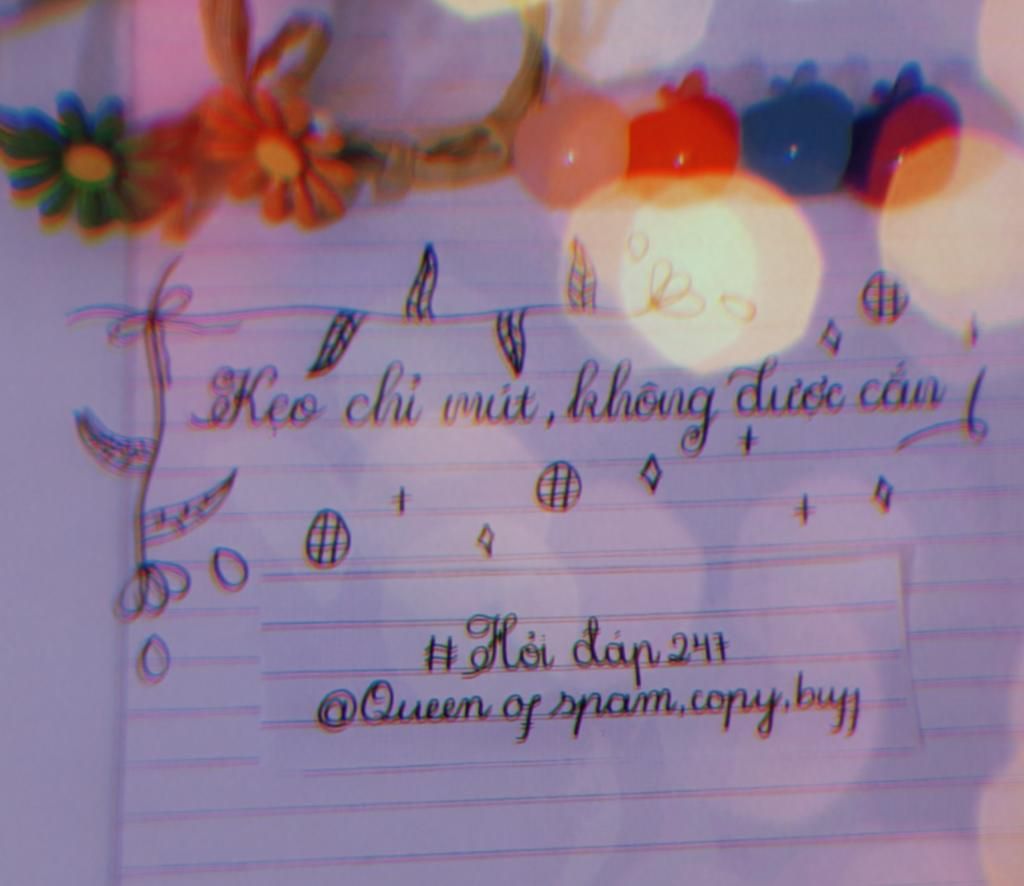 Kẹo chỉ mút, không được cắn !
#Hỏi đáp 247
@Queen of spam, copy, buff